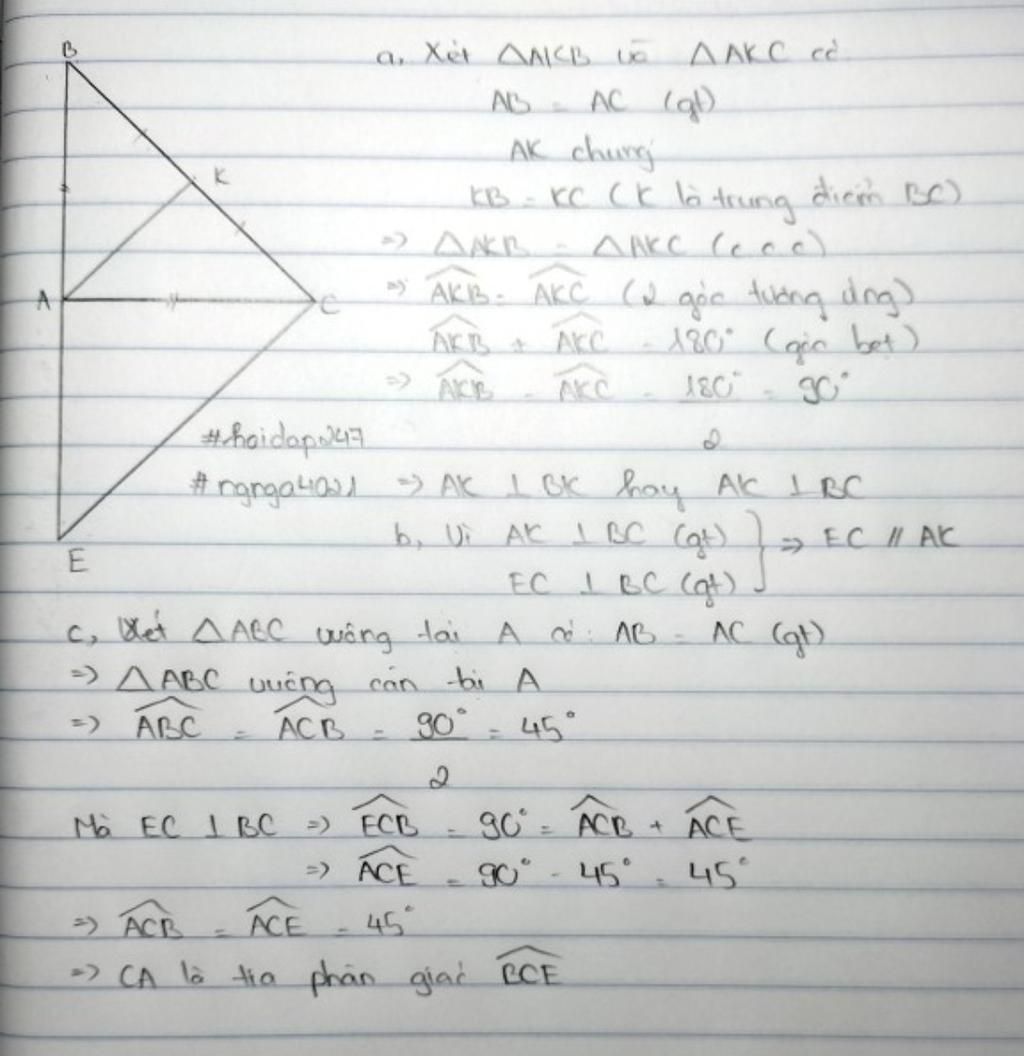 B
K
A
C
E
a, Xét △AKB và △AKC có
AB = AC (gt)
AK chung
KB = KC (K là trung điểm BC)
=> △AKB = △AKC (c.c.c)
=> \widehat{AKB} = \widehat{AKC} (2 góc tương ứng)
\widehat{AKB} + \widehat{AKC} = 180° (góc bẹt)
=> \widehat{AKB} = \widehat{AKC} = 180°/2 = 90°
#hoidap247
#ngnga4021 => AK ⊥ BK hay AK ⊥ BC
b, Vì AK ⊥ BC (gt) } => EC // AK
EC ⊥ BC (gt)
c, Xét △ABC vuông tại A có: AB = AC (gt)
=> △ABC vuông cân tại A
=> \widehat{ABC} = \widehat{ACB} = 90°/2 = 45°
Mà EC ⊥ BC => \widehat{ECB} = 90° = \widehat{ACB} + \widehat{ACE}
=> \widehat{ACE} = 90° - 45° = 45°
=> \widehat{ACB} = \widehat{ACE} = 45°
=> CA là tia phân giác \widehat{BCE}